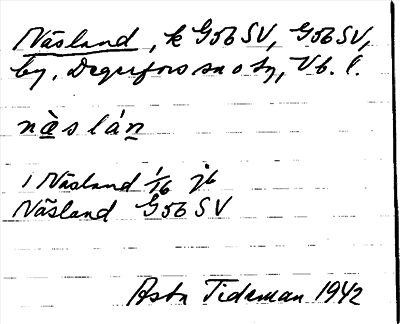 Näsland, k G56 SV, G56 SV,
by, Degerfors sn o tg, Vb. l.
nä̀slán
1 Näsland 1/16 jb
Näsland G56 SV
Asta Tideman 1942